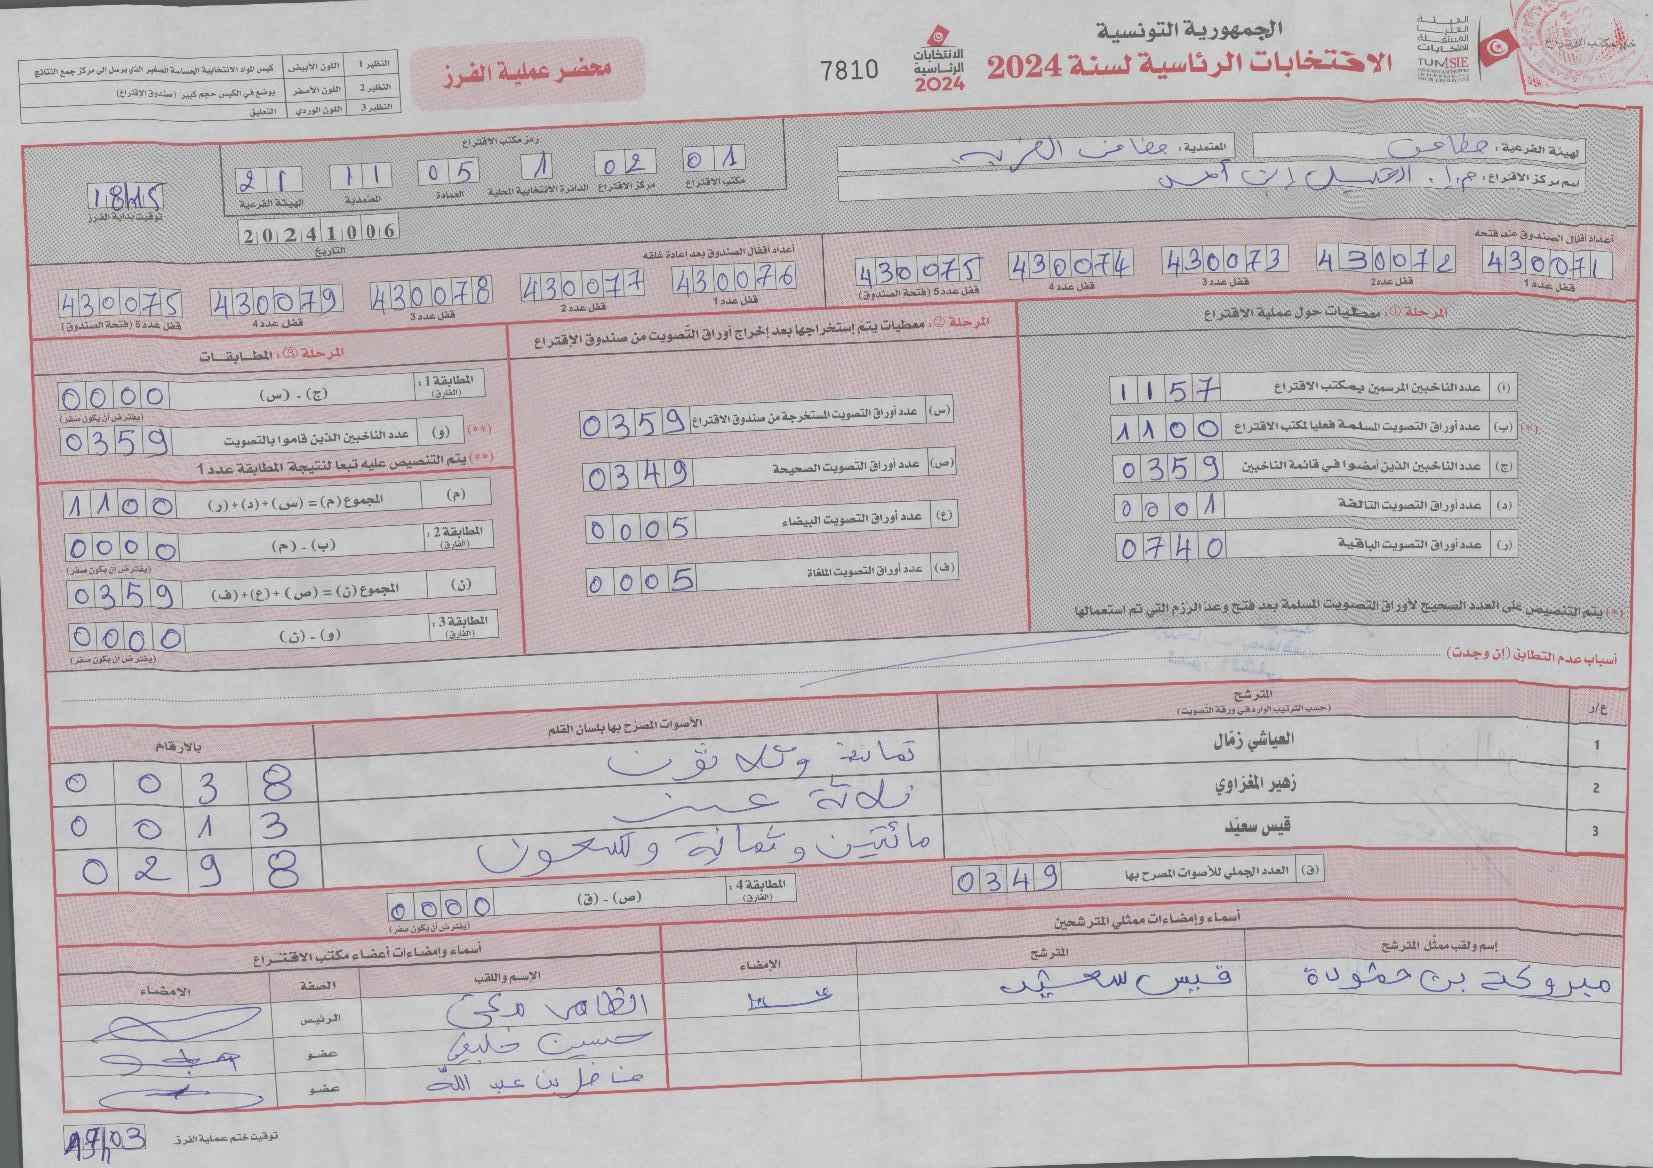 الجمهورية التونسية
الانتخابات الرئاسية لسنة 2024
الانتخابات الرئاسية 2024
TUNISIE
7810
محضر عملية الفرز
النظير 1 اللون الأبيض كيس المواد الانتخابية الحساسة الصغير الذي يرسل الى مركز جمع النتائج
النظير 2 اللون الأصفر يوضع في الكيس حجم كبير (صندوق الاقتراع)
النظير 3 اللون الوردي التعليق
الهيئة الفرعية:
المعتمدية:
اسم مركز الاقتراع:
رمز مكتب الاقتراع
01 02 1 05 11 21
مكتب الاقتراع مركز الاقتراع الدائرة الانتخابية المحلية العمادة المعتمدية الهيئة الفرعية
18h15
توقيت بداية الفرز
20241006
التاريخ
أعداد أقفال الصندوق عند فتحه
430071 430072 430073 430074 430075
قفل عدد 1 قفل عدد 2 قفل عدد 3 قفل عدد 4 قفل عدد 5 (فتحة الصندوق)
أعداد أقفال الصندوق بعد إعادة غلقه
430076 430077 430078 430079 430075
قفل عدد 1 قفل عدد 2 قفل عدد 3 قفل عدد 4 قفل عدد 5 (فتحة الصندوق)
المرحلة ①: معطيات حول عملية الاقتراع
(أ) عدد الناخبين المرسمين بمكتب الاقتراع 1157
(*) (ب) عدد أوراق التصويت المسلمة فعليا لمكتب الاقتراع 1100
(ج) عدد الناخبين الذين أمضوا في قائمة الناخبين 0359
(د) عدد أوراق التصويت التالفة 0001
(ر) عدد أوراق التصويت الباقية 0740
(*) يتم التنصيص على العدد الصحيح لأوراق التصويت المسلمة بعد فتح وعد الرزم التي تم استعمالها
المرحلة ②: معطيات يتم إستخراجها بعد إخراج أوراق التصويت من صندوق الإقتراع
(س) عدد أوراق التصويت المستخرجة من صندوق الاقتراع 0359
(ص) عدد أوراق التصويت الصحيحة 0349
(ع) عدد أوراق التصويت البيضاء 0005
(ف) عدد أوراق التصويت الملغاة 0005
المرحلة ③: المطابقات
المطابقة 1: (الفارق) (ج) - (س) 0000
(يفترض أن يكون صفر)
(**) (و) عدد الناخبين الذين قاموا بالتصويت 0359
(**) يتم التنصيص عليه تبعا لنتيجة المطابقة عدد 1
(م) المجموع (م) = (س) + (د) + (ر) 1100
المطابقة 2: (الفارق) (ب) - (م) 0000
(يفترض ان يكون صفر)
(ن) المجموع (ن) = (ص) + (ع) + (ف) 0359
المطابقة 3: (الفارق) (و) - (ن) 0000
(يفترض ان يكون صفر)
أسباب عدم التطابق (إن وجدت)
ع/ر المترشح (حسب الترتيب الوارد في ورقة التصويت) الأصوات المصرح بها بلسان القلم بالأرقام
1 العياشي زمّال ثمانية وثلاثون 0038
2 زهير المغزاوي ثلاثة عشر 0013
3 قيس سعيّد مائتين وثمانية وتسعون 0298
(ق) العدد الجملي للأصوات المصرح بها 0349
المطابقة 4: (الفارق) (ص) - (ق) 0000
(يفترض أن يكون صفر)
أسماء وإمضاءات ممثلي المترشحين
إسم ولقب ممثّل المترشح المترشح الإمضاء
مبروكة بن قيس سعيد
أسماء وإمضاءات أعضاء مكتب الاقتراع
الإسم واللقب الصفة الامضاء
الرئيس
حسين عضو
بن عبد الله عضو
توقيت ختم عملية الفرز